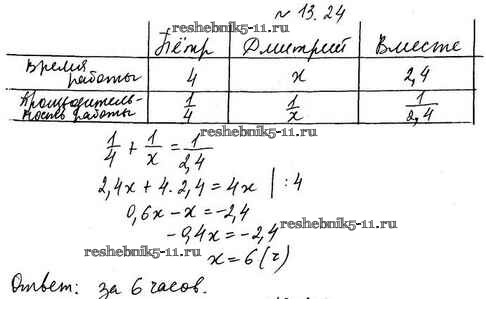 № 13.24
reshebnik5-11.ru
Пётр Дмитрий Вместе
Время работы 4 x 2,4
Производительность работы 1/4 1/x 1/2,4
reshebnik5-11.ru
1/4 + 1/x = 1/2,4
2,4x + 4 · 2,4 = 4x | : 4
0,6x - x = -2,4
reshebnik5-11.ru
-0,4x = -2,4
reshebnik5-11.ru
x = 6 (ч)
Ответ: за 6 часов.